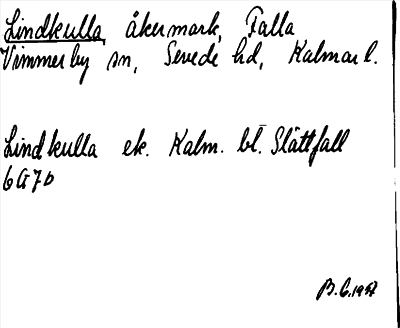 Lindkulla, åkermark, Falla
Vimmerby sn, Sevede hd, Kalmar l.
Lindkulla ek. Kalm. bl. Slättfall
6G7b
B.G. 1957